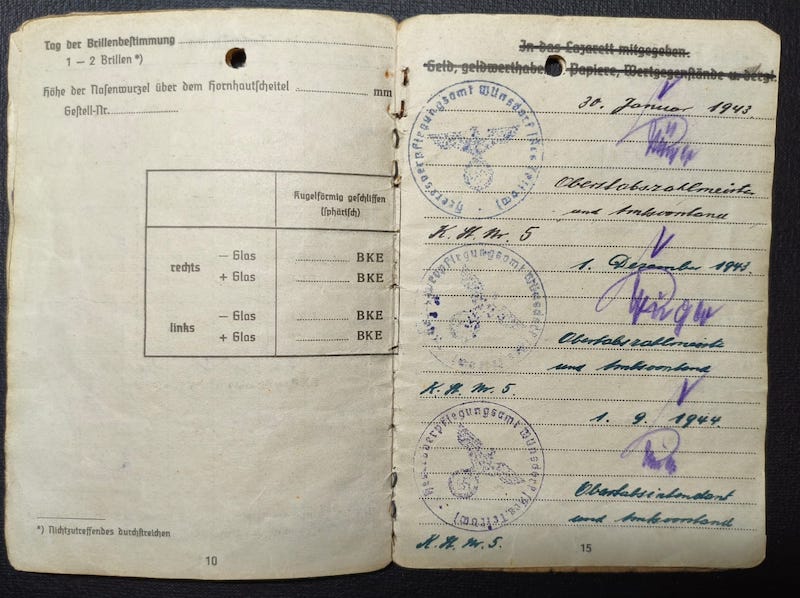 Tag der Brillenbestimmung
1 – 2 Brillen *)
Höhe der Nasenwurzel über dem Hornhautscheitel mm
Gestell-Nr.
Kugelförmig geschliffen
(sphärisch)
rechts
– Glas BKE
+ Glas BKE
links
– Glas BKE
+ Glas BKE
*) Nichtzutreffendes durchstreichen
10
In das Lazarett mitgegeben.
Geld, geldwerthabende Papiere, Wertgegenstände u. dergl.
Heeresverpflegungsamt Wünsdorf (Kr. Teltow)
30. Januar 1943.
Oberstabszahlmeister
und Amtsvorstand
K. H. Nr. 5
Heeresverpflegungsamt Wünsdorf
1. Dezember 1943.
Oberstabszahlmeister
und Amtsvorstand
K. H. Nr. 5.
Heeresverpflegungsamt Wünsdorf (Kr. Teltow)
1. 9. 1944.
Oberstabsintendant
und Amtsvorstand
K. H. Nr. 5.
15